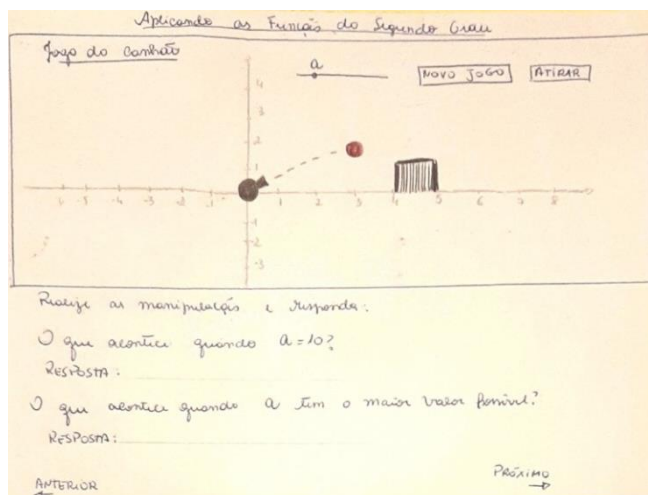 Aplicando as Função do Segundo Grau
Jogo do Canhão
a
NOVO JOGO
ATIRAR
4
2
1
-5 -4 -3 -2 -1 1 2 3 4 5 6 7 8
-1
-2
-3
Realize as manipulações e responda:
O que acontece quando a=10?
RESPOSTA:
O que acontece quando a tem o maior valor possível?
RESPOSTA:
PRÓXIMO
ANTERIOR